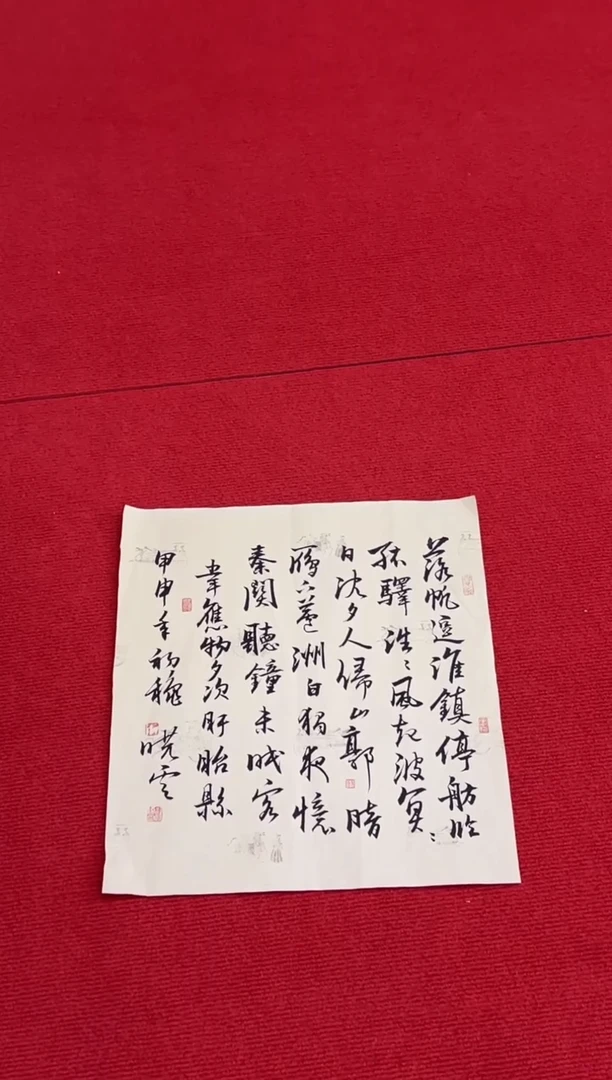 落帆逗淮鎮停舫临
孤驛浩〻風起波冥〻
日沈夕人歸山郭暗
鴈下蘆洲白獨夜憶
秦關聽鐘未眠客
韋應物夕次盱眙縣
甲申年初穐 曉雲